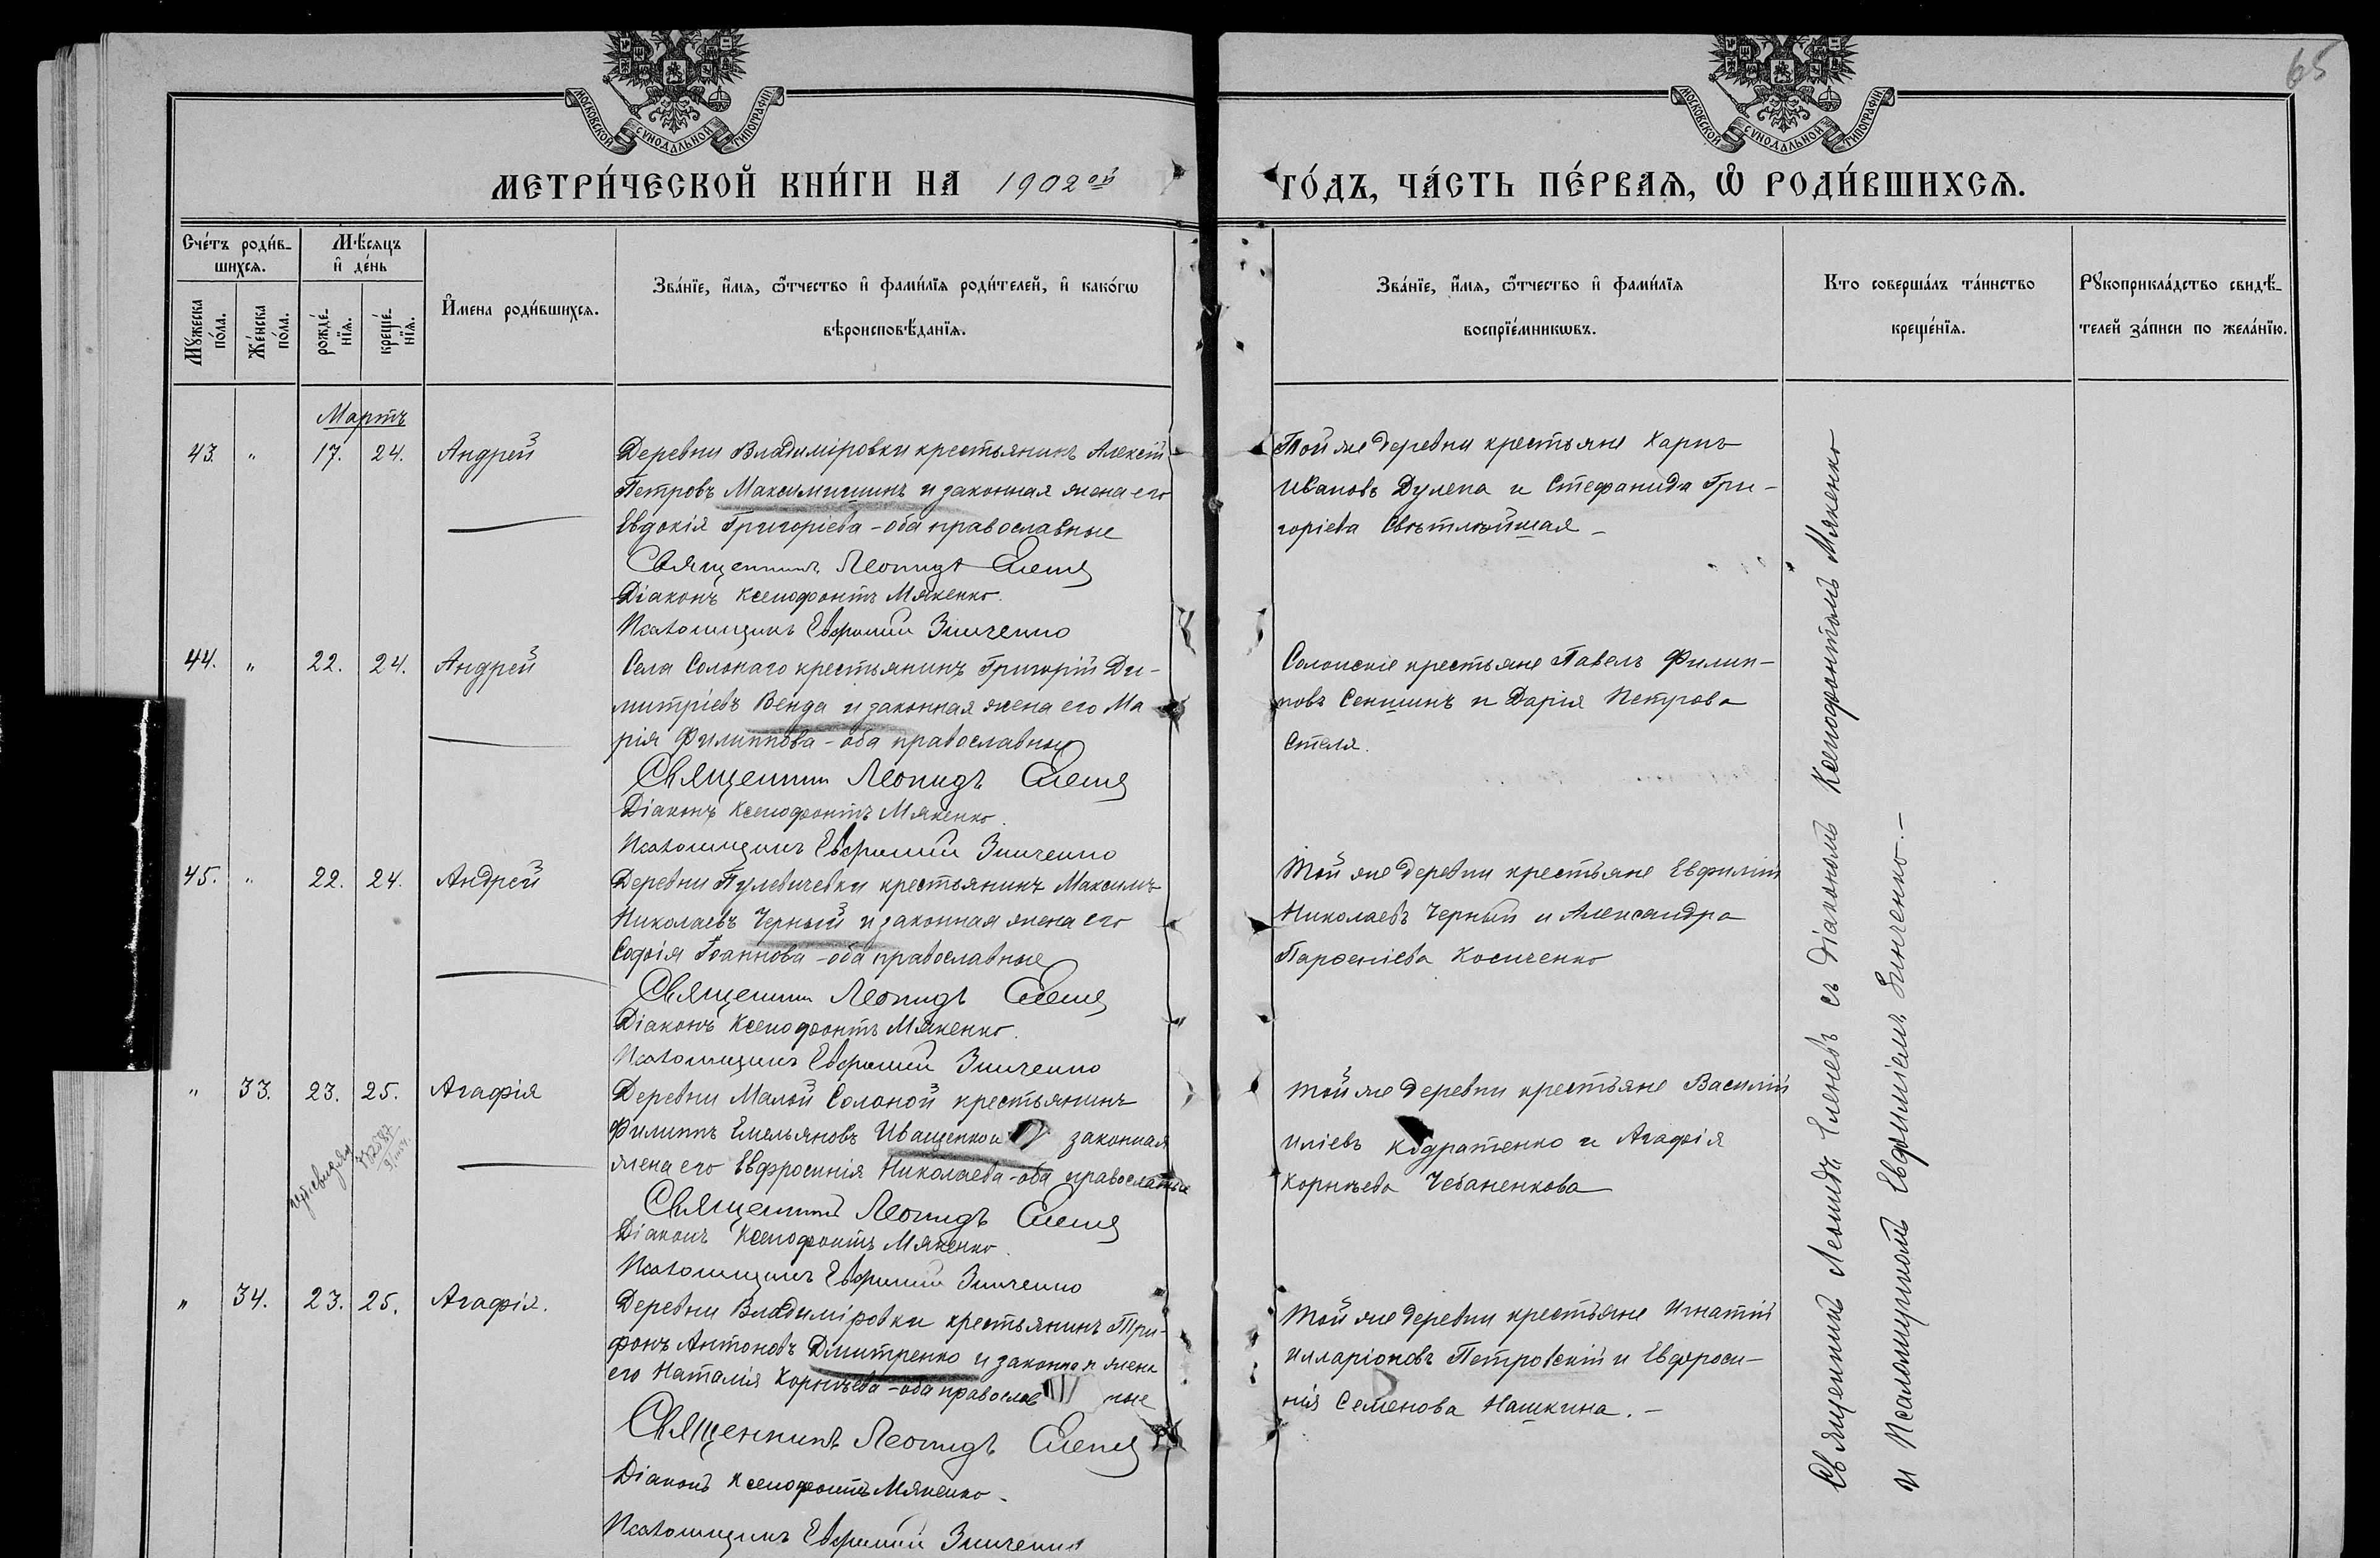 65
МОСКОВСКОЙ СѴНОДАЛЬНОЙ ТИПОГРАФІИ
МОСКОВСКОЙ СѴНОДАЛЬНОЙ ТИПОГРАФІИ
МЕТРИ́ЧЕСКОЙ КНИ́ГИ НА 1902ой
ГО́ДЪ, ЧА́СТЬ ПЕ́РВАѦ, Ѡ҆ РОДИ́ВШИХСѦ.
Сче́тъ роди́в-
шихсѧ.
Мѣ́сѧцъ
и҆ де́нь
Мꙋ́жеска по́ла.
Же́нска по́ла.
рожде́-нїѧ.
креще́-нїѧ.
И҆мена роди́вшихсѧ.
Зва́нїе, и҆́мѧ, ѻ҆́тчество и҆ фами́лїѧ роди́телей, и҆ како́гѡ
вѣроисповѣ́данїѧ.
Зва́нїе, и҆́мѧ, ѻ҆́тчество и҆ фами́лїѧ
воспрїе́мникѡвъ.
Кто соверша́лъ та́инство
креще́нїѧ.
Рꙋкоприкла́дство свидѣ́-
телей за́писи по жела́нїю.
Мартъ
43. " 17. 24. Андрей
Деревни Владиміровки крестьянинъ Алексій
Петровъ Максимишинъ и законная жена его
Евдокія Григоріева - оба православные
Священникъ Леонидъ Еленев
Діаконъ Ксенофонтъ Мякенко.
Псаломщикъ Евфимій Зинченко
Той же деревни крестьяне Харпъ
Ивановъ Дулепа и Стефанида Гри-
горіева Свѣтлѣйшая -
44. " 22. 24. Андрей
Села Солонаго крестьянинъ Григорій Ди-
митріевъ Венда и законная жена его Ма
рія Филиппова - оба православные
Священникъ Леонидъ Еленев
Діаконъ Ксенофонтъ Мякенко.
Псаломщикъ Евфимій Зинченко
Солонскіе крестьяне Павелъ Филип-
повъ Секшинъ и Дарія Петрова
Стеля.
45. " 22. 24. Андрей
Деревни Пулевичевки крестьянинъ Максимъ
Николаевъ Черный и законная жена его
Софія Іоаннова - оба православные
Священникъ Леонидъ Еленев
Діаконъ Ксенофонтъ Мякенко.
Псаломщикъ Евфимій Зинченко
Той же деревни крестьяне Евфимій
Николаевъ Черный и Александра
Парѳеніева Косиченко
" 33. 23. 25. Агафія
Деревни Малой Солоной крестьянинъ
Филиппъ Емельяновъ Иващенко и законная
жена его Евфросинія Николаева - оба православные
Священникъ Леонидъ Еленев
Діаконъ Ксенофонтъ Мякенко.
Псаломщикъ Евфимій Зинченко
Той же деревни крестьяне Василій
Иліевъ Кодратенко и Агафія
Корнѣева Чебаненкова
" 34. 23. 25. Агафія.
Деревни Владиміровки крестьянинъ Три-
фонъ Антоновъ Дмитренко и законная жена
его Наталія Корнѣева - оба православ ные
Священникъ Леонидъ Еленев
Діаконъ Ксенофонтъ Мякенко.
Псаломщикъ Евфимій Зинченко
Той же деревни крестьяне Игнатій
Илларіоновъ Петровскій и Евфроси-
нія Семенова Нашкина. -
Священникъ Леонидъ Еленевъ съ діакономъ Ксенофонтомъ Мякенко
и Псаломщикомъ Евфиміемъ Зинченко. -